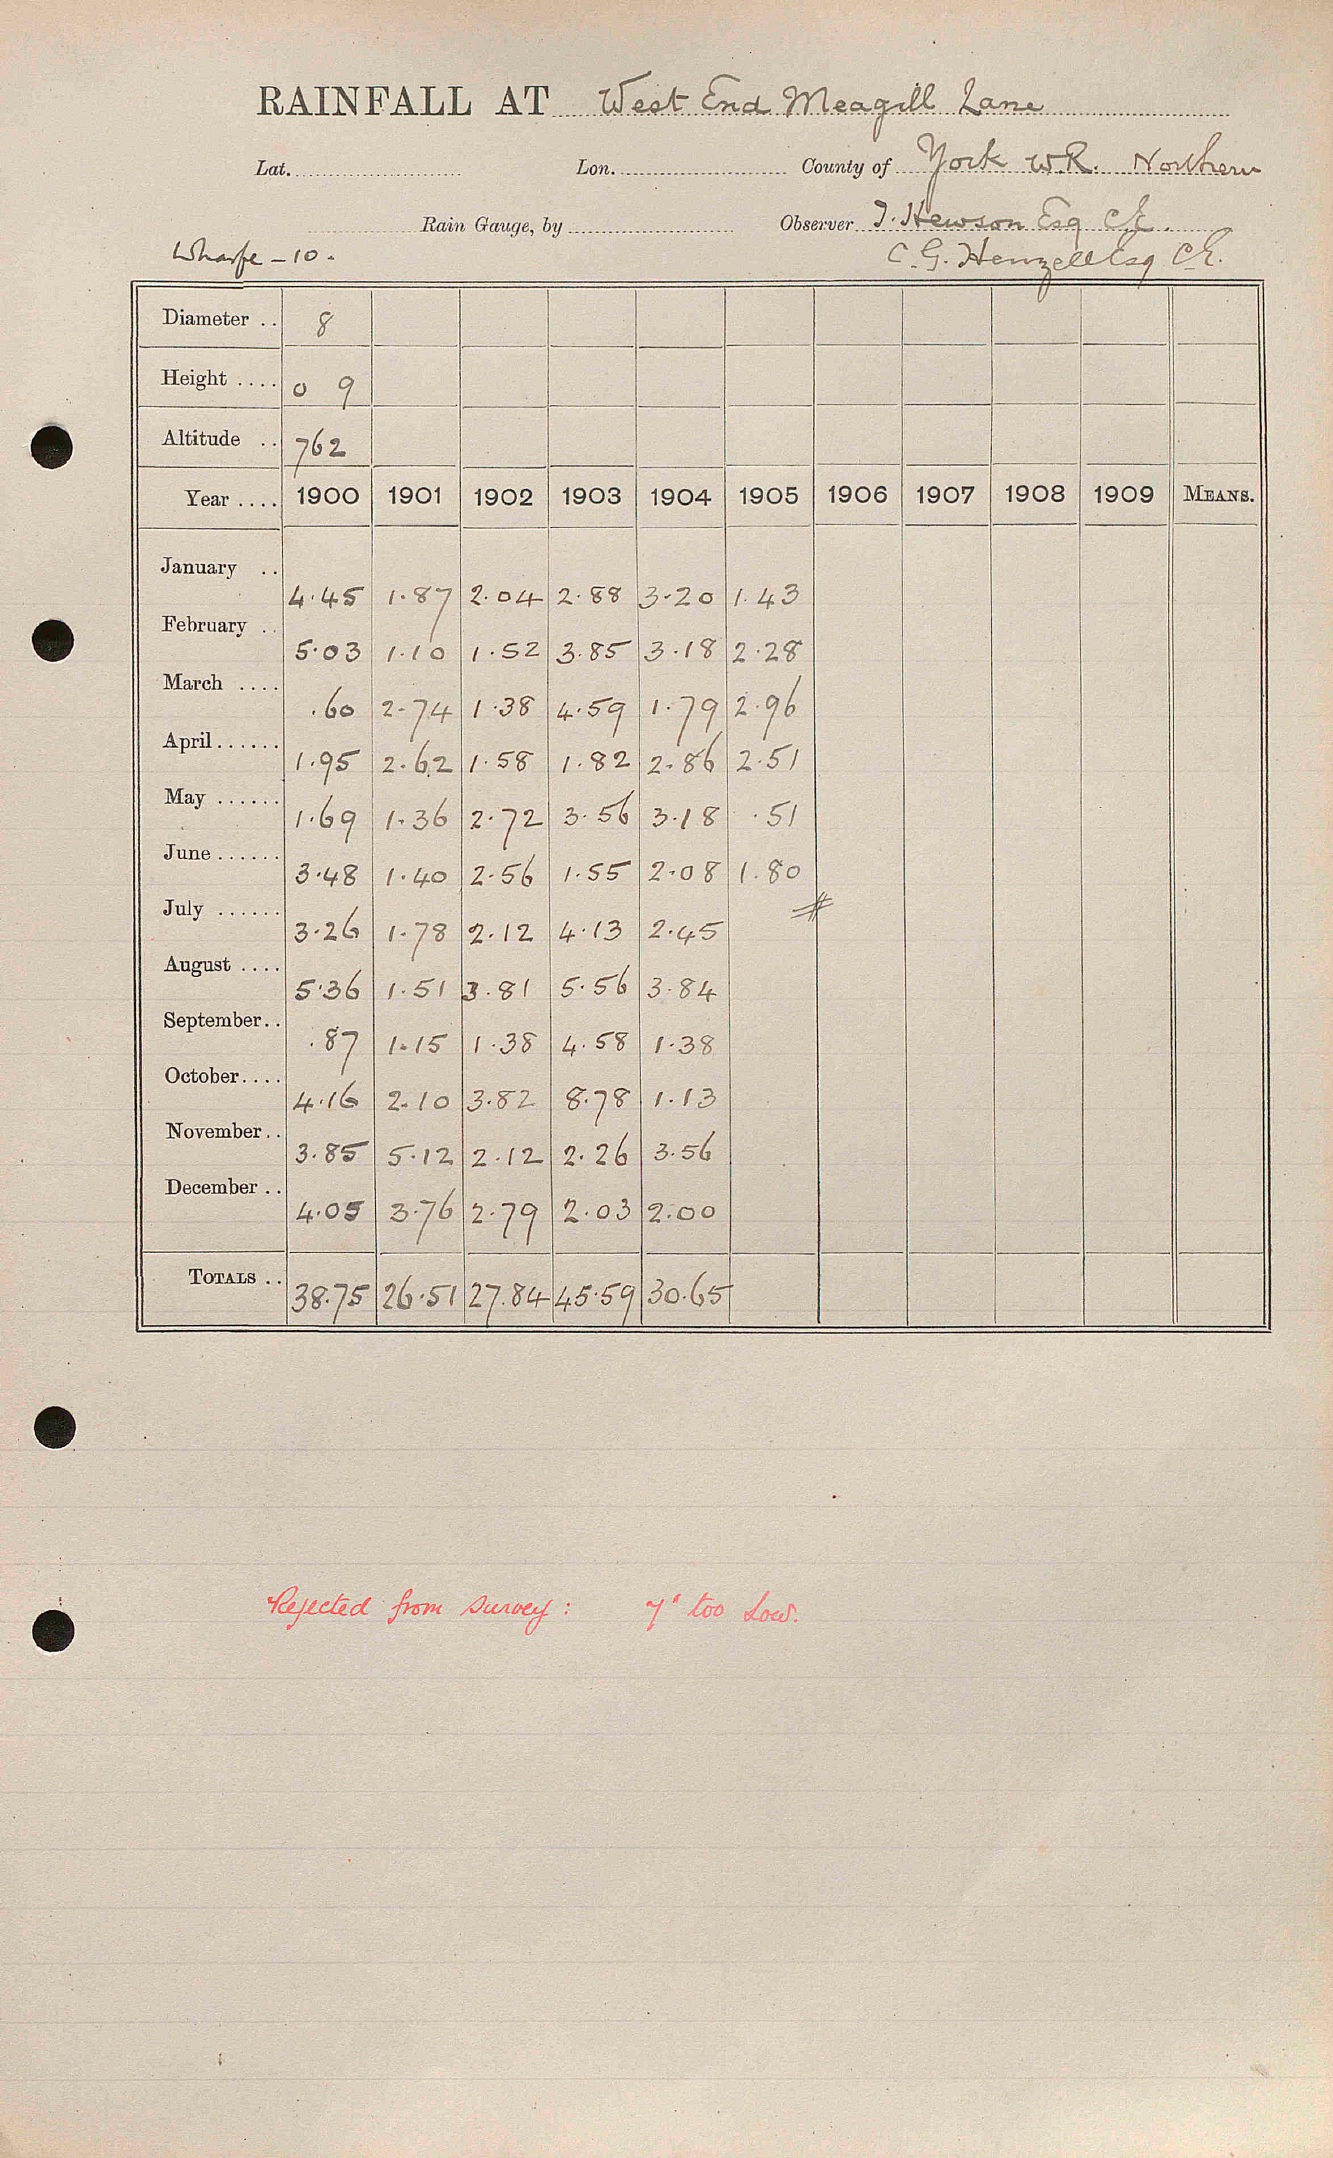 RAINFALL AT West End Meagill Lane
Lat. Lon. County of York W.R. Northern
Rain Gauge, by Observer T. Hewson Esq C.E.
Wharfe - 10. C. G. Henzell Esq C.E.
Diameter .. 8
Height .... 0 9
Altitude .. 762
Year .... 1900 1901 1902 1903 1904 1905 1906 1907 1908 1909 MEANS.
January .. 4.45 1.87 2.04 2.88 3.20 1.43
February .. 5.03 1.10 1.52 3.85 3.18 2.28
March .... .60 2.74 1.38 4.59 1.79 2.96
April ...... 1.95 2.62 1.58 1.82 2.86 2.51
May ...... 1.69 1.36 2.72 3.56 3.18 .51
June ...... 3.48 1.40 2.56 1.55 2.08 1.80
July ...... 3.26 1.78 2.12 4.13 2.45
August .... 5.36 1.51 3.81 5.56 3.84
September.. .87 1.15 1.38 4.58 1.38
October.... 4.16 2.10 3.82 8.78 1.13
November.. 3.85 5.12 2.12 2.26 3.56
December .. 4.05 3.76 2.79 2.03 2.00
TOTALS .. 38.75 26.51 27.84 45.59 30.65
Rejected from survey: 7" too low.